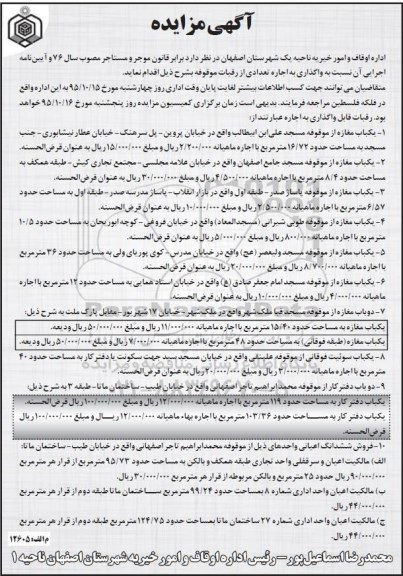 آگهی مزایده
اداره اوقاف و امور خیریه ناحیه یک شهرستان اصفهان در نظر دارد برابر قانون موجر و مستاجر مصوب سال ۷۶ و آیین‌نامه
اجرایی آن نسبت به واگذاری به اجاره تعدادی از رقبات موقوفه بشرح ذیل اقدام نماید.
متقاضیان می توانند جهت کسب اطلاعات بیشتر لغایت پایان وقت اداری روز چهارشنبه مورخ ۹۵/۱۰/۱۵ به این اداره واقع
در فلکه فلسطین مراجعه فرمایند. بدیهی است زمان برگزاری کمیسیون مزایده روز پنجشنبه مورخ ۹۵/۱۰/۱۶ خواهد
بود. رقبات قابل واگذاری به اجاره عبارتند از:
۱- یکباب مغازه از موقوفه مسجد علی ابن ابیطالب واقع در خیابان پروین - پل سرهنگ - خیابان عطار نیشابوری - جنب
مسجد به مساحت حدود ۱۶/۷۲ مترمربع با اجاره ماهیانه ۲/۲۰۰/۰۰۰ ریال و مبلغ ۱۵/۰۰۰/۰۰۰ ریال به عنوان قرض‌الحسنه.
۲- یکباب مغازه از موقوفه مسجد جامع اصفهان واقع در خیابان علامه مجلسی - مجتمع تجاری کیش - طبقه همکف به
مساحت حدود ۸/۴ مترمربع با اجاره ماهیانه ۴/۵۰۰/۰۰۰ ریال و مبلغ ۳۰/۰۰۰/۰۰۰ ریال به عنوان قرض‌الحسنه.
۳- یکباب مغازه از موقوفه پاساژ صدر - طبقه اول واقع در بازار انقلاب - پاساژ مدرسه صدر - طبقه اول به مساحت حدود
۶/۵۷ مترمربع با اجاره ماهیانه ۲/۵۰۰/۰۰۰ ریال و مبلغ ۱۰/۰۰۰/۰۰۰ ریال به عنوان قرض‌الحسنه.
۴- یکباب مغازه از موقوفه طوبی شیرانی (مسجدالمعاد) واقع در خیابان فروغی - کوچه ابوریحان به مساحت حدود ۱۰/۵
مترمربع با اجاره ماهیانه ۸۰۰/۰۰۰ ریال و مبلغ ۵/۰۰۰/۰۰۰ ریال به عنوان قرض‌الحسنه.
۵- یکباب مغازه از موقوفه مسجد ولیعصر (عج) واقع در خیابان مدرس - کوی پوریای ولی به مساحت حدود ۳۶ مترمربع
با اجاره ماهیانه ۸/۷۰۰/۰۰۰ ریال و مبلغ ۲۰/۰۰۰/۰۰۰ ریال به عنوان قرض‌الحسنه.
۶- یکباب مغازه از موقوفه مسجد امام جعفر صادق (ع) واقع در خیابان استاد همایی به مساحت حدود ۱۲ مترمربع با اجاره
ماهیانه ۴/۰۰۰/۰۰۰ ریال و مبلغ ۱۰/۰۰۰/۰۰۰ ریال به عنوان قرض‌الحسنه.
۷- دو باب مغازه از موقوفه مسجد قبا ملک شهر واقع در ملک شهر - خیابان ۱۷ شهریور - مقابل پارک ملت به شرح ذیل:
یکباب مغازه به مساحت حدود ۱۵/۴۰ مترمربع با اجاره ماهیانه ۱۱/۰۰۰/۰۰۰ ریال و مبلغ ۵۰/۰۰۰/۰۰۰ ریال ودیعه.
یکباب مغازه (طبقه فوقانی) به مساحت حدود ۴۸ مترمربع با اجاره ماهیانه ۷/۰۰۰/۰۰۰ ریال و مبلغ ۵۰/۰۰۰/۰۰۰ ریال ودیعه.
۸- یکباب سوئیت فوقانی از موقوفه علینقی واقع در خیابان مسجد سید جهت سکونت یا دفتر کار به مساحت حدود ۴۰
مترمربع با اجاره ماهیانه ۳/۰۰۰/۰۰۰ ریال و مبلغ ۲۰/۰۰۰/۰۰۰ ریال به عنوان قرض‌الحسنه.
۹- دو باب دفتر کار از موقوفه محمدابراهیم تاجر اصفهانی واقع در خیابان طیب - ساختمان مانا - طبقه ۳ به شرح ذیل:
یکباب دفتر کار به مساحت حدود ۱۱۹ مترمربع با اجاره ماهیانه ۱۲/۰۰۰/۰۰۰ ریال و مبلغ ۱۰۰/۰۰۰/۰۰۰ ریال قرض‌الحسنه.
یکباب دفتر کار به مساحت حدود ۱۰۳/۳۶ مترمربع با اجاره بهاء ماهیانه ۱۲/۰۰۰/۰۰۰ ریال و مبلغ ۱۰۰/۰۰۰/۰۰۰ ریال
قرض‌الحسنه.
۱۰- فروش ششدانگ اعیانی واحدهای ذیل از موقوفه محمدابراهیم تاجر اصفهانی واقع در خیابان طیب - ساختمان مانا:
الف) مالکیت اعیان و سرقفلی واحد تجاری طبقه همکف و بالکن به مساحت حدود ۹۵/۷۳ مترمربع از قرار هر مترمربع
۹۰/۰۰۰/۰۰۰ ریال حدود ۲۵ مترمربع و بالکن مربوطه از قرار هر مترمربع ۳۰/۰۰۰/۰۰۰ ریال.
ب) مالکیت اعیان واحد اداری شماره ۸ بمساحت حدود ۹۹/۲۴ مترمربع ساختمان مانا طبقه دوم از قرار هر مترمربع
۴۴/۰۰۰/۰۰۰ ریال.
ج) مالکیت اعیان واحد اداری شماره ۲۷ ساختمان مانا بمساحت حدود ۱۲۴/۷۵ مترمربع طبقه دوم از قرار هر مترمربع
۴۴/۰۰۰/۰۰۰ ریال.
م الف: ۱۲۶۰۵
محمدرضا اسماعیل پور - رئیس اداره اوقاف و امور خیریه شهرستان اصفهان ناحیه ۱